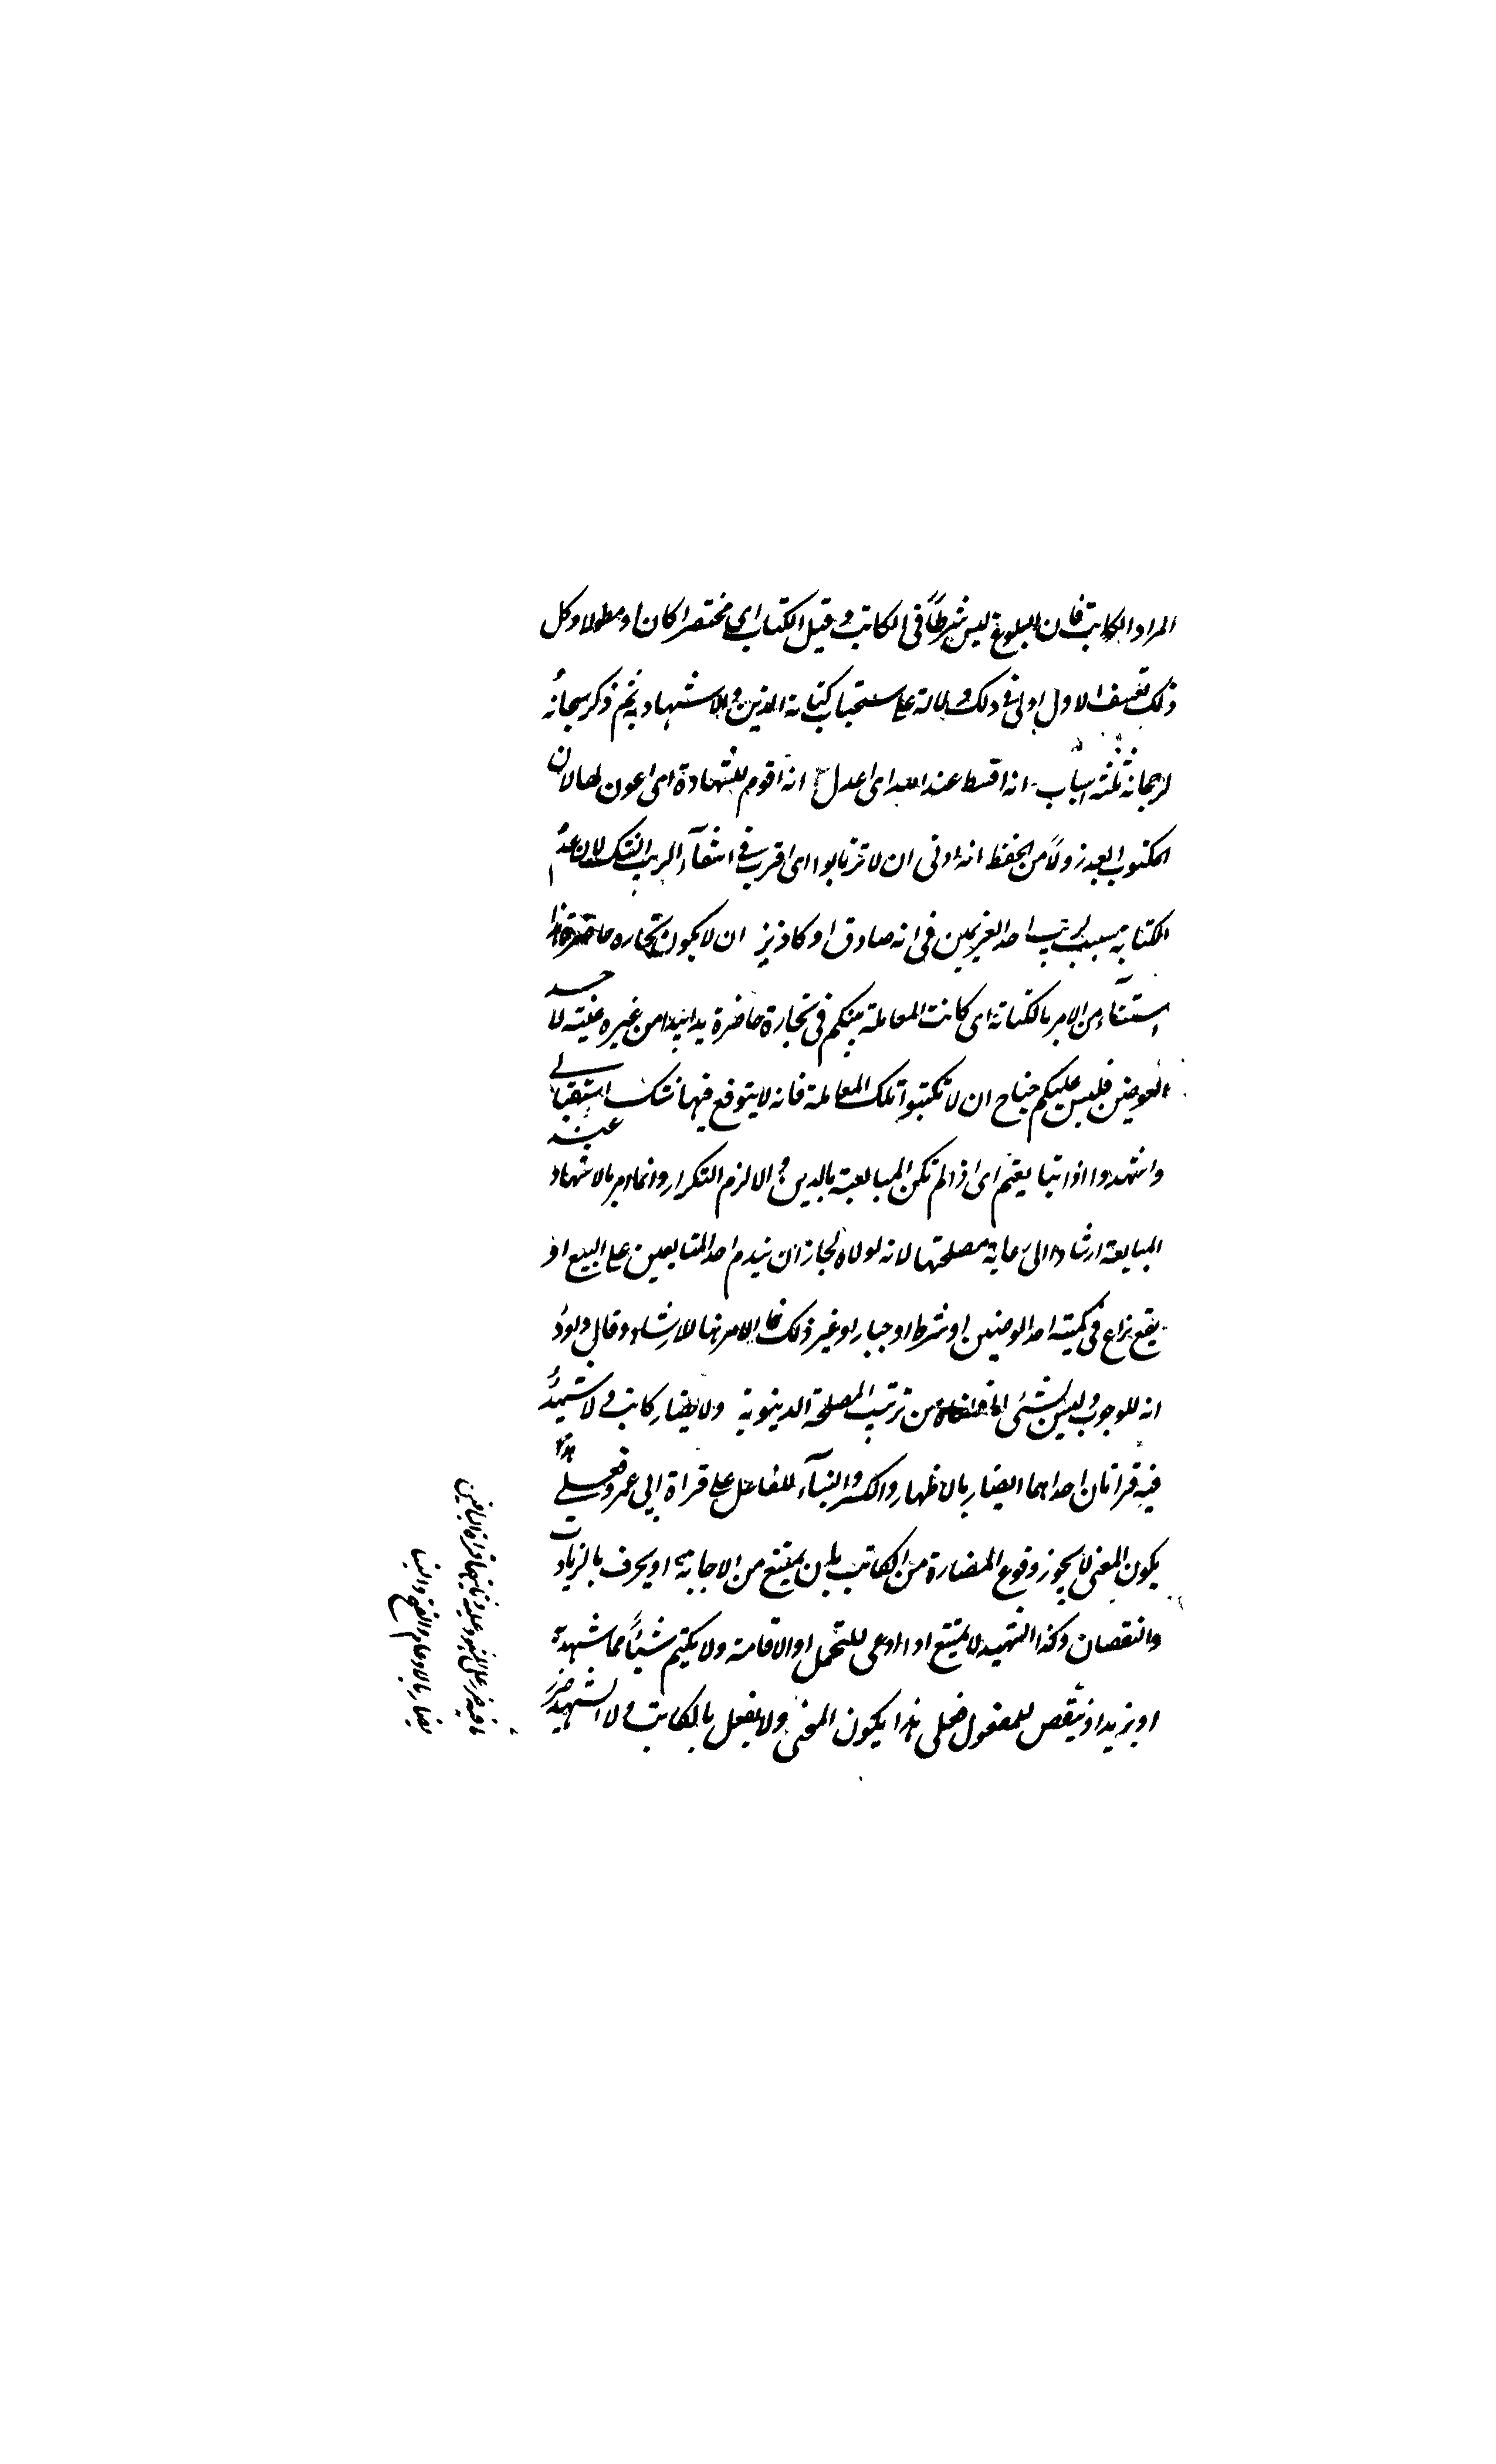 المراد الكاتب فان البلوغ ليس شرطاً في الكاتب و قيل الكتاب اي مختصرا كان او مطولا و كل
ذلك تعسف الاول اولى و في ذلك دلالة على استحباب كتابة الدين و الاشهاد به ثم ذكر سبحانه
لرجحانه ثلثة اسباب انه اقسط عند الله اى اعدل انه اقوم للشهادة اى اعون لها لان
المكتوب ابعد زولاً من الحفظ انه ادنى ان لا ترتابوا اى اقرب في انتفآء الريب الشك لان عدم
الكتابة سبب لريب احد الغريمين في انه صادق او كاذب ان لا يكون تجارة حاضرة
استثنآء من الامر بالكتابة اى كانت المعاملة بينكم في تجارة حاضرة يدا بيد من غير غيبة لاحد
العوضين فليس عليكم جناح ان لا تكتبوا تلك المعاملة فانه لا يتوقع فيها شك استقبالي
و اشهدوا اذا تبايعتم اى اذا لم تكن المبايعة بالدين و الا لزم التكرار و انما امر بالاشهاد عند
المبايعة ارشادا الى رعاية مصلحتها لانه لولاه لجاز ان يندم احد المتبايعين على البيع او
يقع نزاع في كمية احد العوضين او شرط او خيار او غير ذلك فالامر بها للارشاد و قال داود
انه للوجوب و ليس بشئ من ترتب المصلحة الدنيوية و لا يضار كاتب و لا شهيد
فيه قراتان احداهما يضار بالاظهار و الكسر و البنآء للفاعل على قراة ابي عمرو فعلى هذا
يكون المعنى لا يجوز وقوع المضارة من الكاتب بان يمتنع من الاجابة او يحرف بالزيادة
و النقصان و كذا الشهيد لا يمتنع اذا دعى للتحمل او الاقامة و لا يكتم شيئاً مما شهد به
او يزيد او ينقص للمفعول فعلى هذا يكون المعنى و لا يفعل بالكاتب و لا الشهيد ضرر
ما فيه ضرر على المشهود عليه و ثانيهما قراءة الباقين
يضار بالادغام و الفتح و البنا